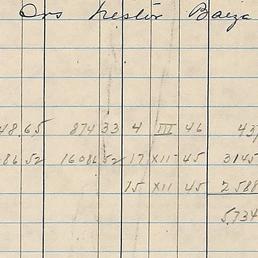 Drs Nestor Baiza
48.65 874 33 4 III 46 437
86 52 16086 52 17 XII 45 3145
15 XII 45 2588
5.734